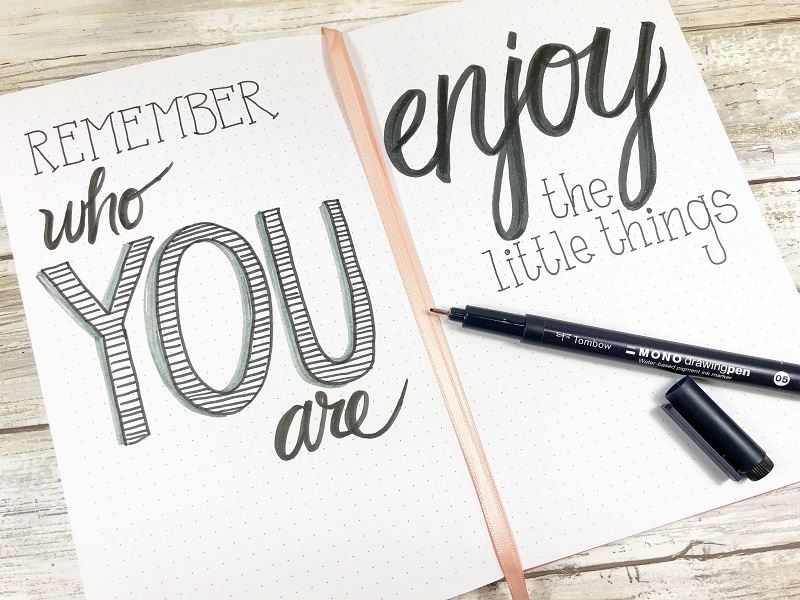 REMEMBER
who
YOU
are
enjoy
the
little things
Tombow
MONO drawingpen
Water-based pigment ink marker
05